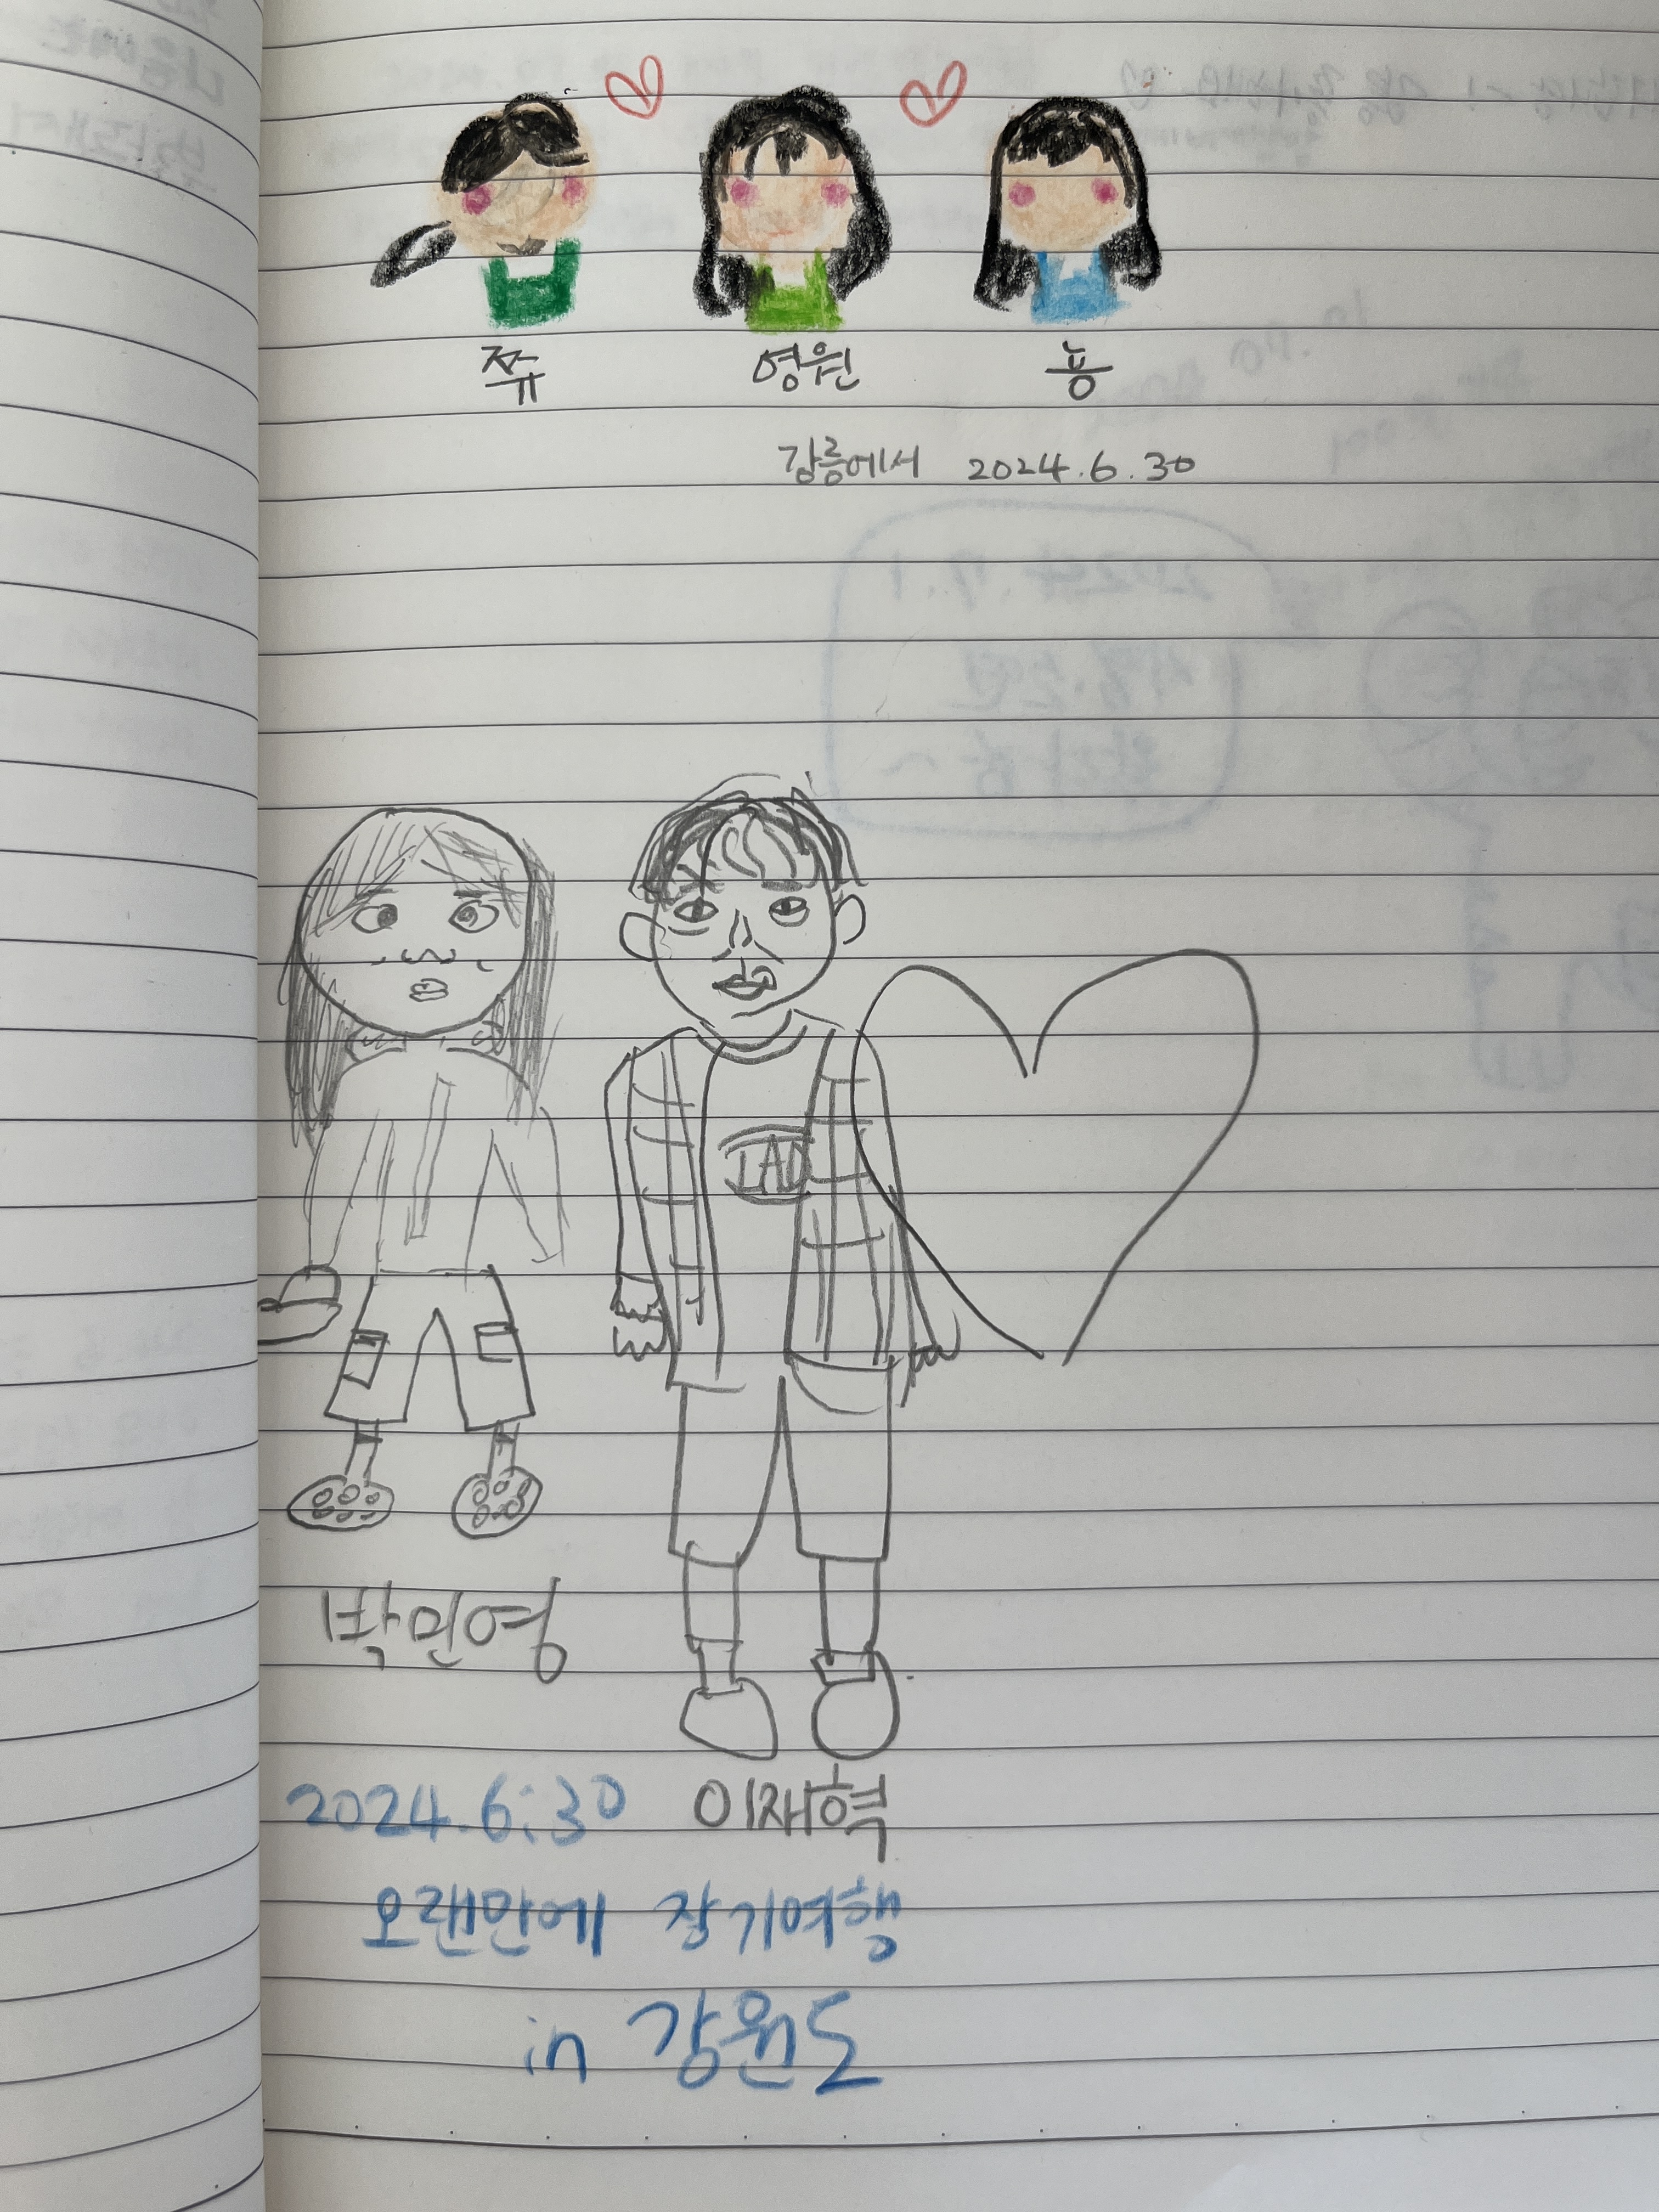 쮸 영원 뇽
강릉에서 2024.6.30
IAB
박민영
2024.6.30 이재혁
오랜만에 장기여행
in 강원도